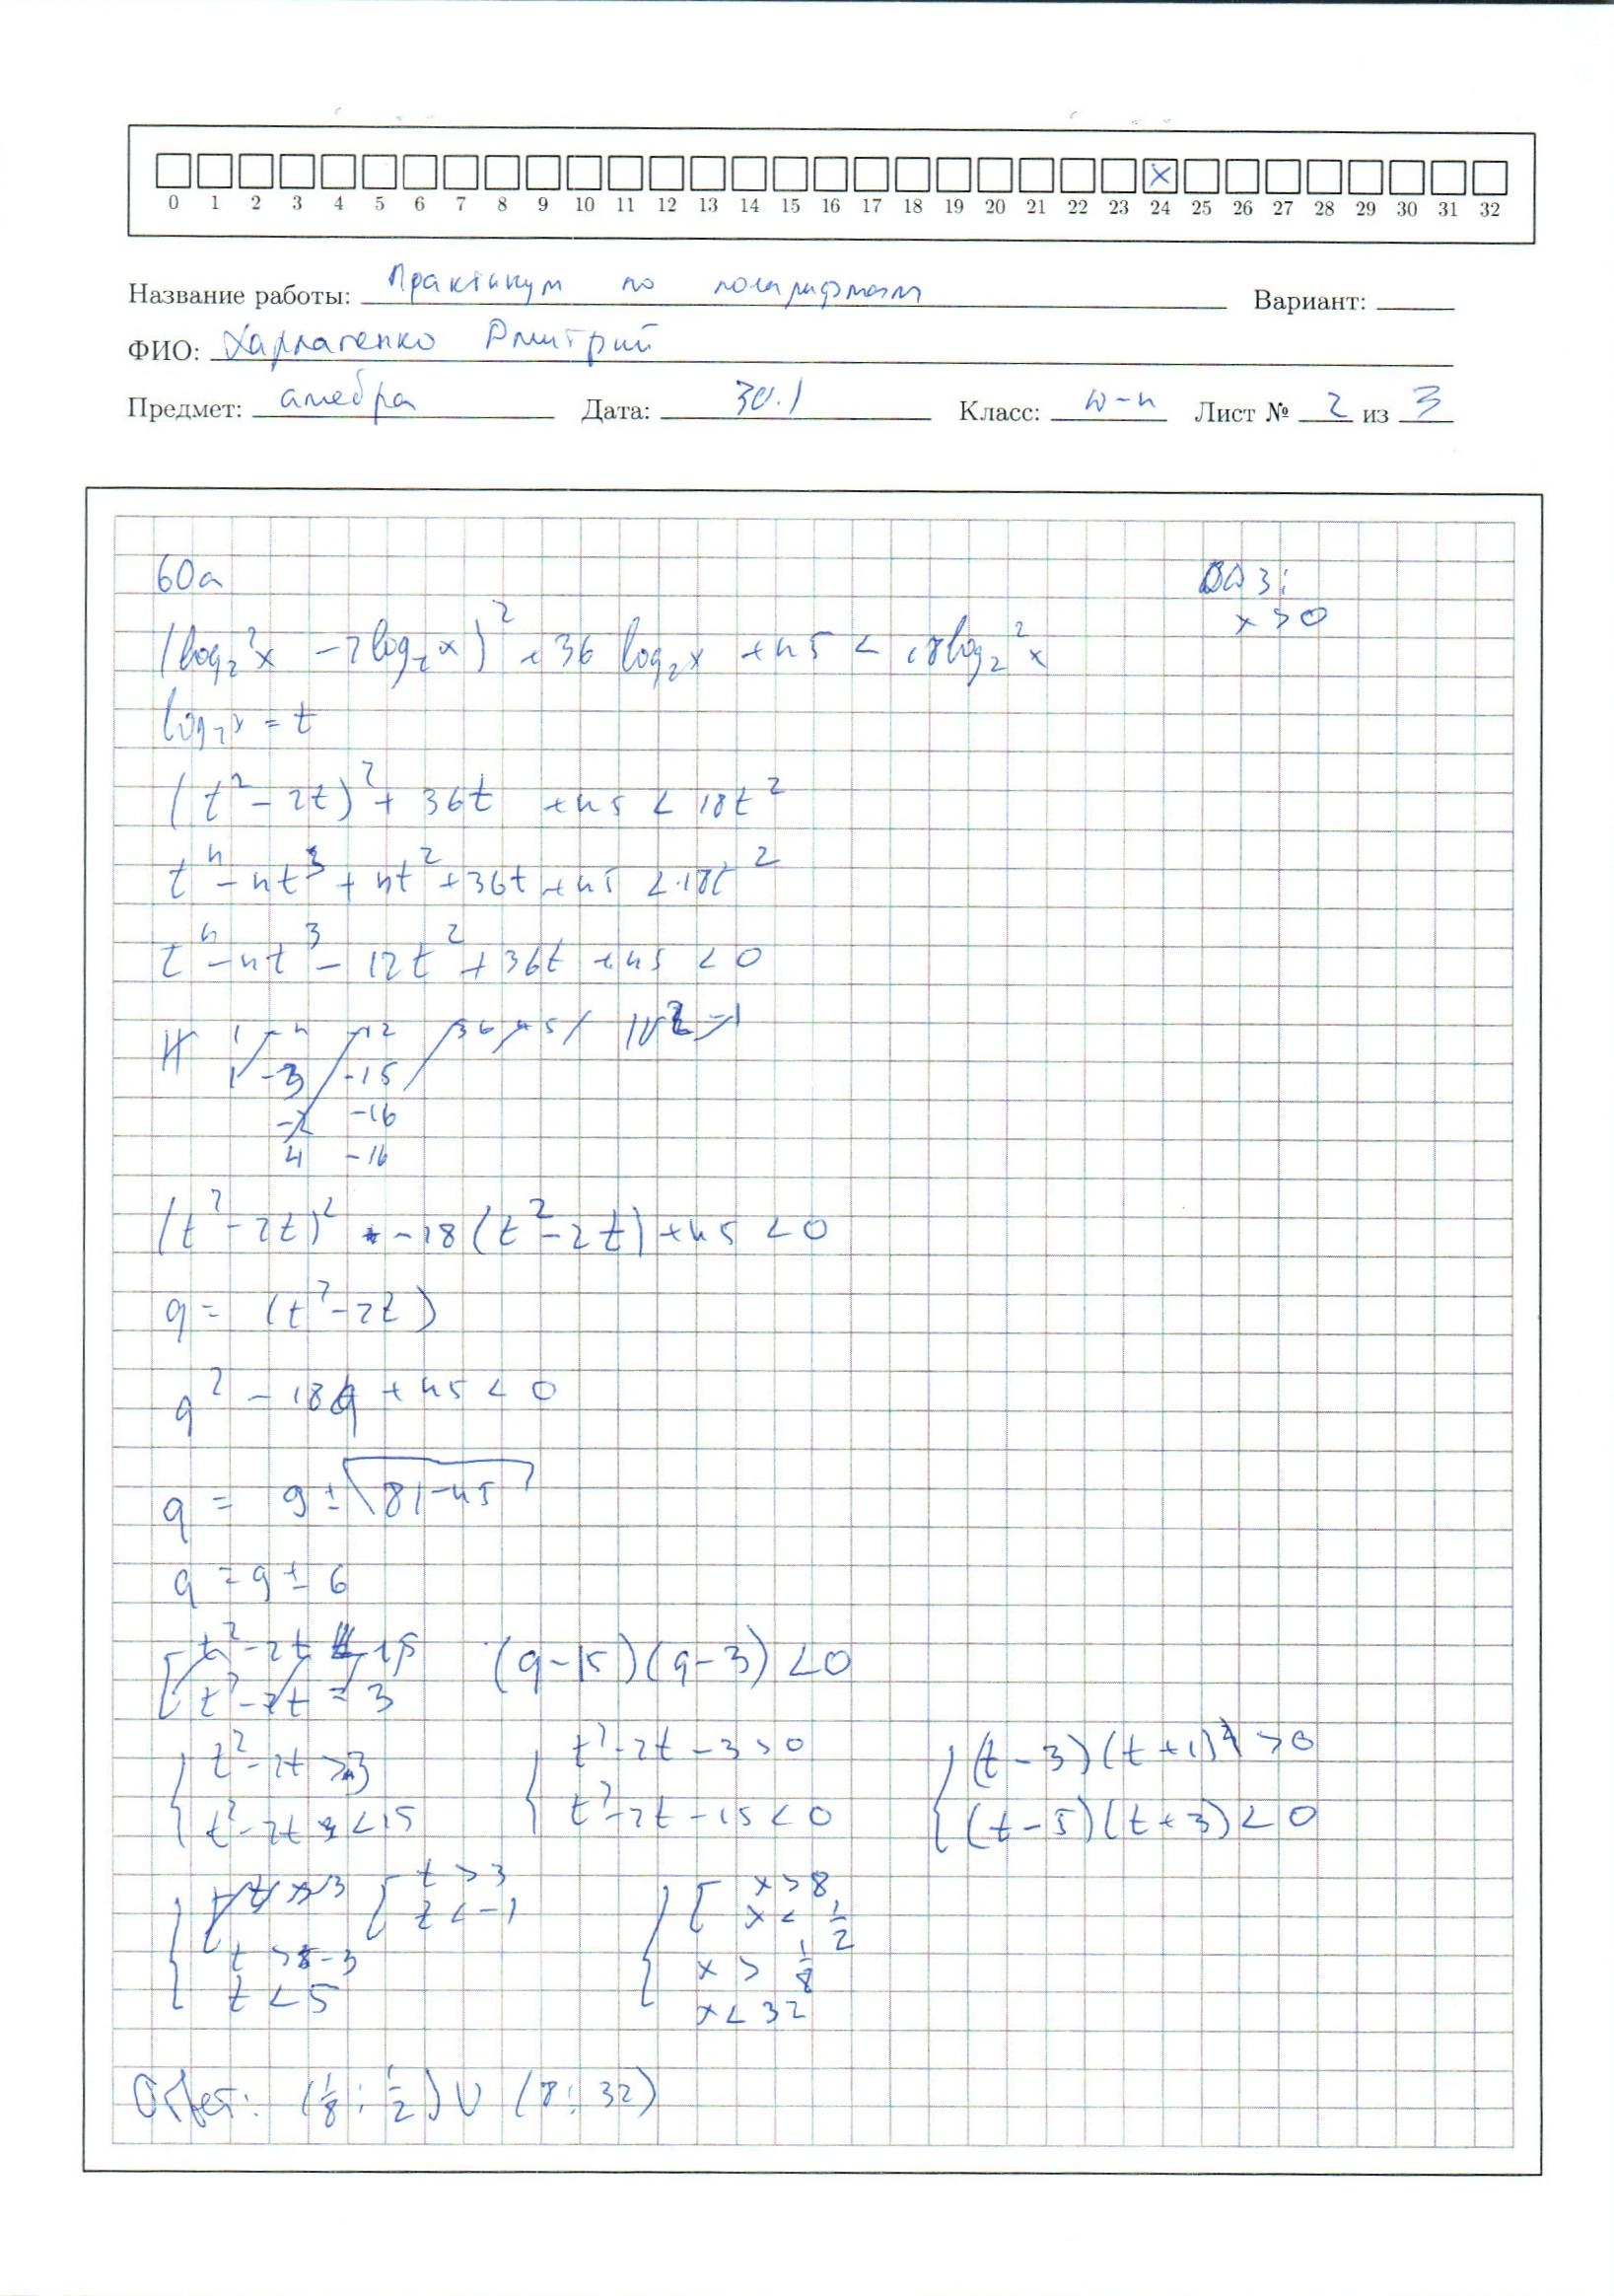 0 1 2 3 4 5 6 7 8 9 10 11 12 13 14 15 16 17 18 19 20 21 22 23 24 25 26 27 28 29 30 31 32
Название работы: Практикум по логарифмам Вариант:
ФИО: Дмитрий
Предмет: алгебра Дата: 30.1 Класс: 10-4 Лист № 2 из 3
60а ОДЗ:
x > 0
(log₂²x − 2log₂x)² + 36 log₂x + 45 < 18log₂²x
log₂x = t
(t² − 2t)² + 36t + 45 < 18t²
t⁴ − 4t³ + 4t² + 36t + 45 < 18t²
t⁴ − 4t³ − 12t² + 36t + 45 < 0
1 −4 −12 36 45
1 −3 −15
−2 −16
4 −16
(t² − 2t)² − 18(t² − 2t) + 45 < 0
q = (t² − 2t)
q² − 18q + 45 < 0
q = 9 ± √(81−45)
q = 9 ± 6
t² − 2t 15 (q−15)(q−3) < 0
t² − 2t = 3
t² − 2t > 3 t² − 2t − 3 > 0 (t − 3)(t + 1) > 0
t² − 2t < 15 t² − 2t − 15 < 0 (t − 5)(t + 3) < 0
t > 3 x > 8
t < −1 x < 1/2
t > −3 x > 1/8
t < 5 x < 32
Ответ: (1/8 ; 1/2) ∪ (8 ; 32)